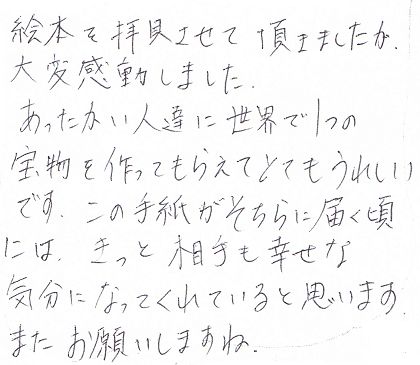 絵本を拝見させて頂きましたが、
大変感動しました。
あったかい人達に世界で1つの
宝物を作ってもらえてとてもうれしい
です。この手紙がそちらに届く頃
には、きっと相手も幸せな
気分になってくれていると思います。
またお願いしますね。